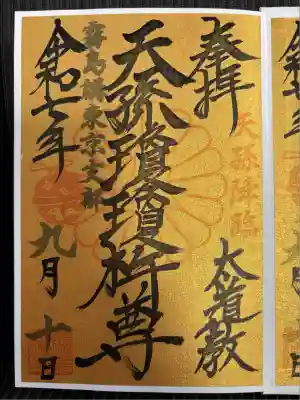 奉拝
天孫降臨
太道教
天孫瓊瓊杵尊
霧島講東京支部
令和七年
九月
十日